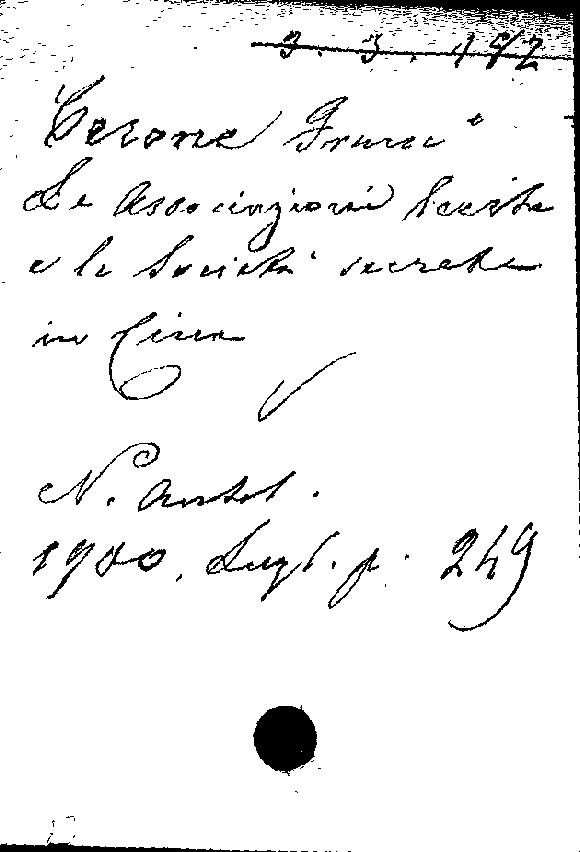 3. 3. 152
Cerone Franc.°
Le Associazioni lecite
e le Società secrete
in Cina
N. Antol.
1900, Lugl. p. 249